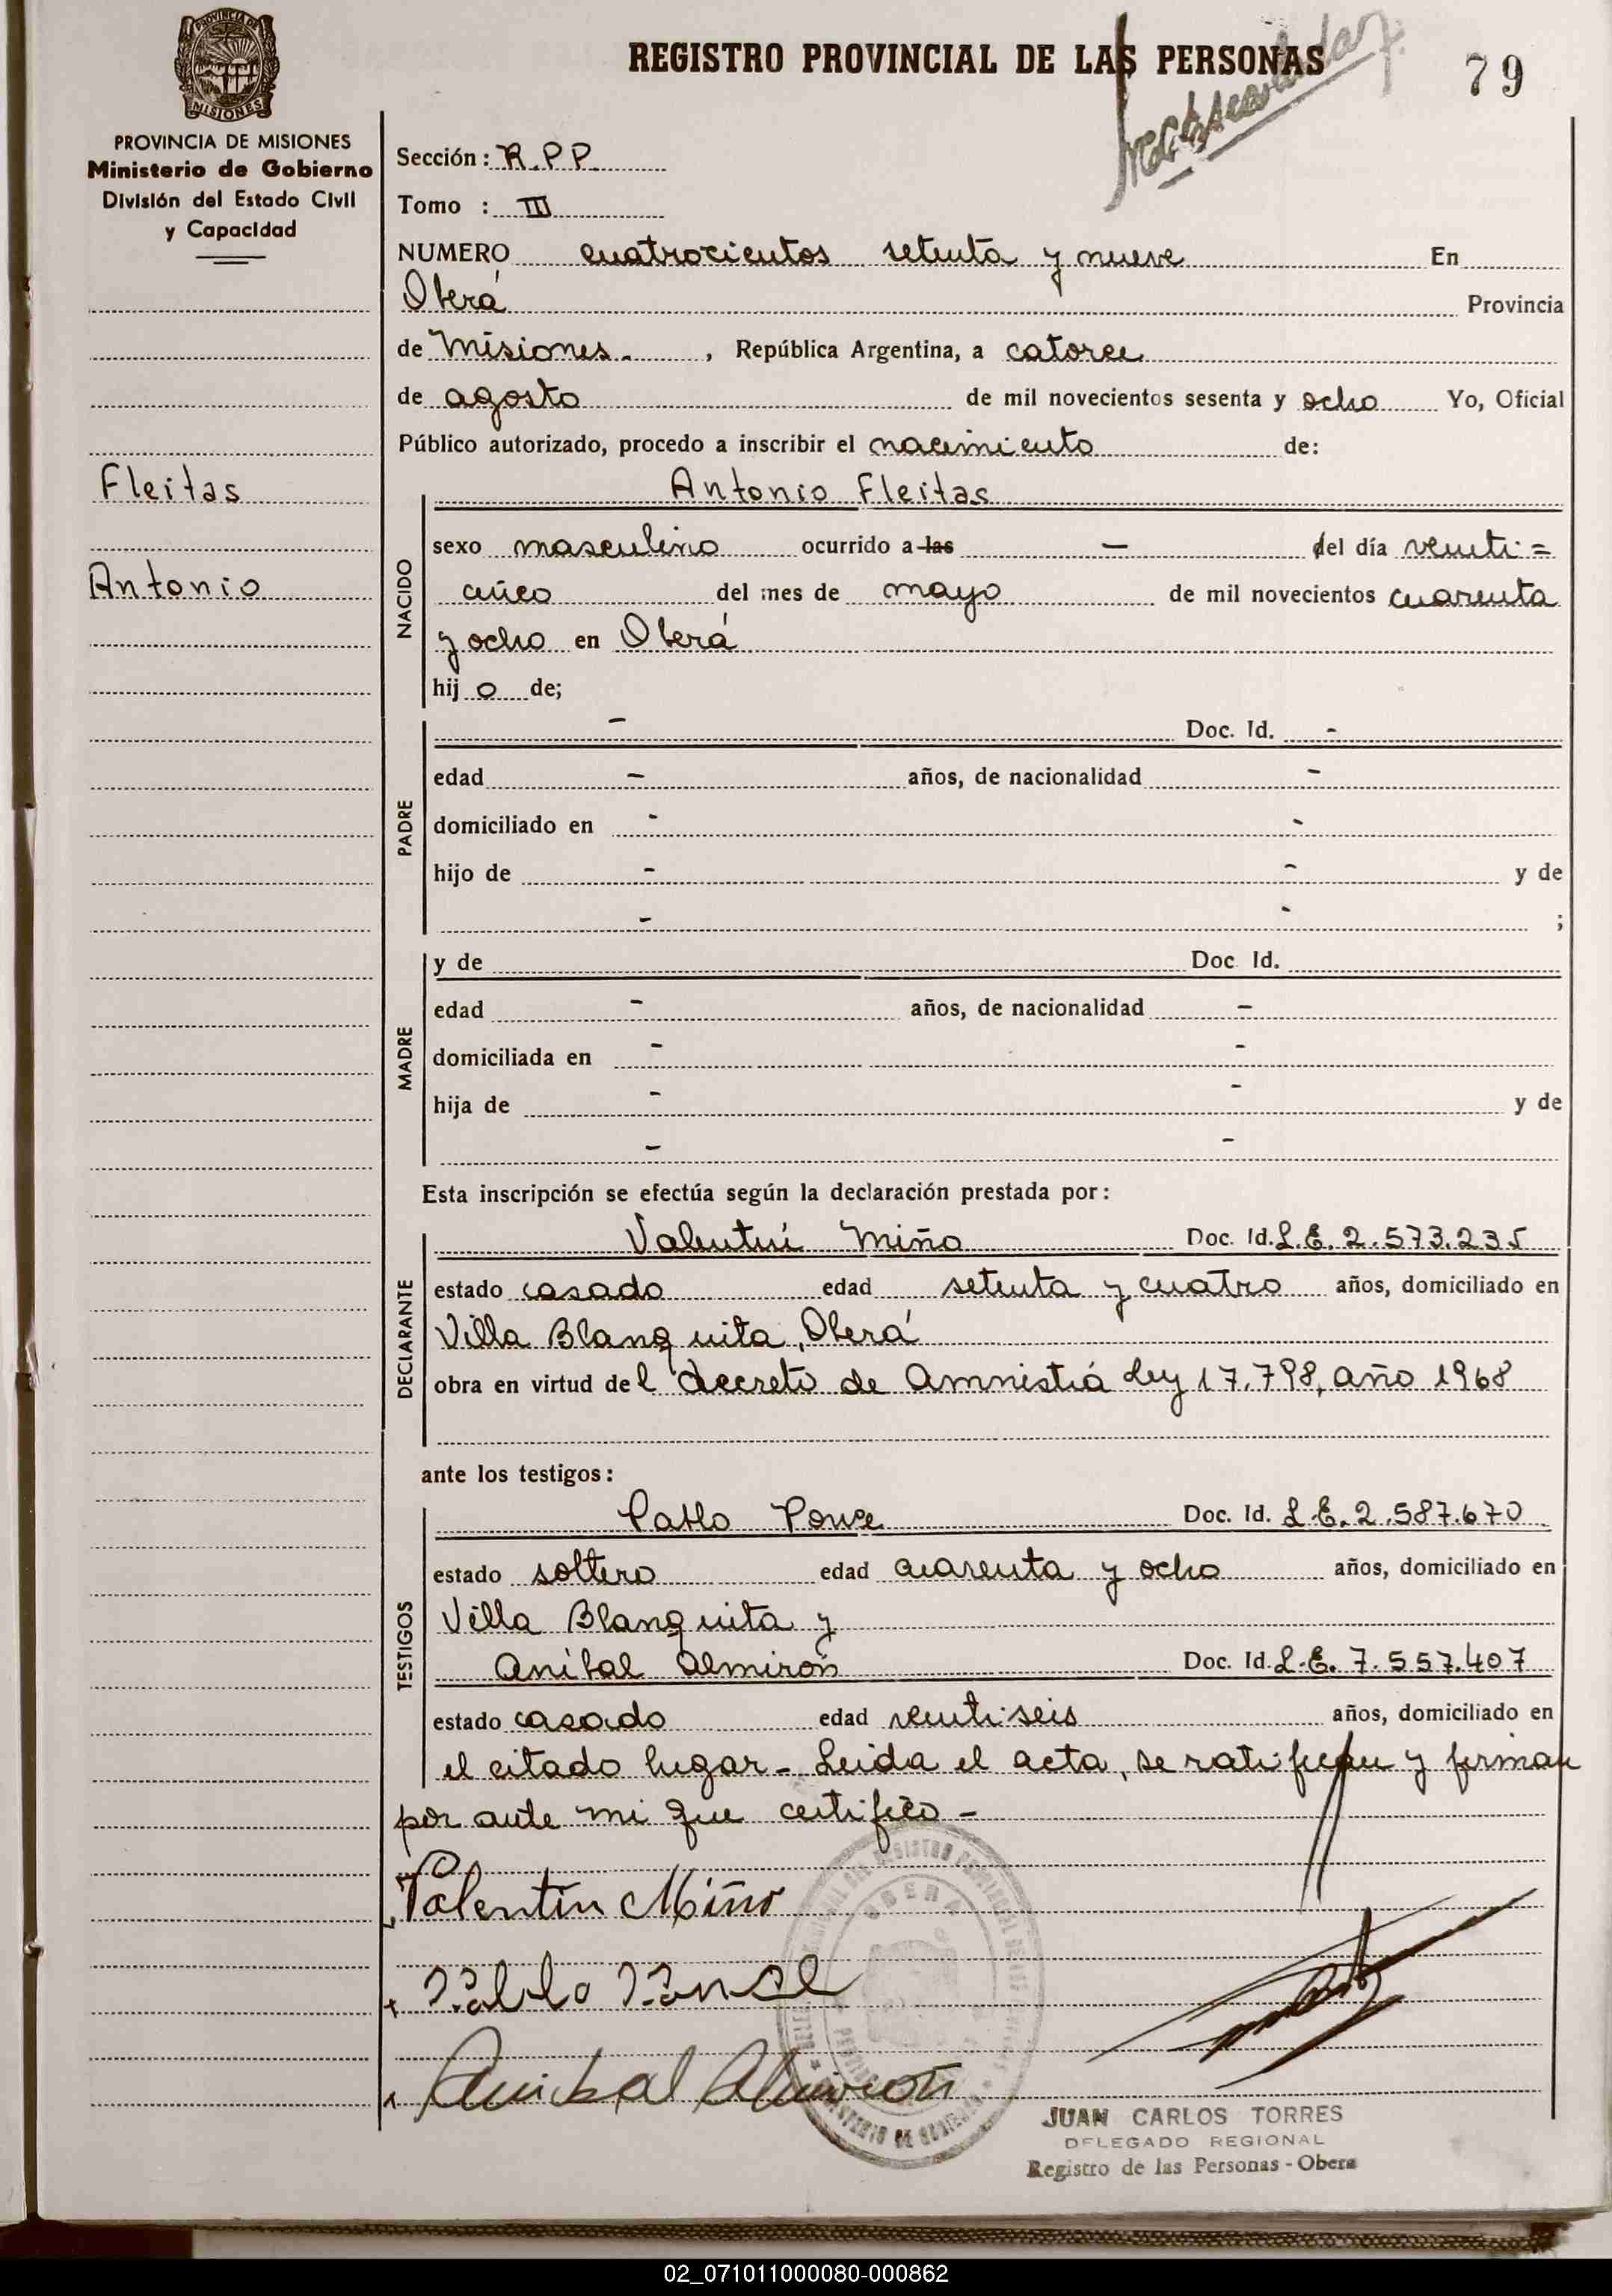 PROVINCIA DE
MISIONES
REGISTRO PROVINCIAL DE LAS PERSONAS
79
PROVINCIA DE MISIONES
Ministerio de Gobierno
División del Estado Civil
y Capacidad
Sección: R.P.P.
Tomo : III
NUMERO cuatrocientos setenta y nueve En
Oberá Provincia
de Misiones. , República Argentina, a catorce
de agosto de mil novecientos sesenta y ocho Yo, Oficial
Público autorizado, procedo a inscribir el nacimiento de:
Fleitas
Antonio
NACIDO
Antonio Fleitas
sexo masculino ocurrido a las — del día veinti=
cinco del mes de mayo de mil novecientos cuarenta
y ocho en Oberá
hij o de;
PADRE
- Doc. Id. -
edad - años, de nacionalidad -
domiciliado en - -
hijo de - - y de
- - ;
MADRE
y de Doc. Id.
edad - años, de nacionalidad -
domiciliada en - -
hija de - - y de
- -
Esta inscripción se efectúa según la declaración prestada por:
DECLARANTE
Valentín Miño Doc. Id. L.E. 2.573.235
estado casado edad setenta y cuatro años, domiciliado en
Villa Blanquita, Oberá
obra en virtud del decreto de Amnistía Ley 17.798, año 1968
ante los testigos:
TESTIGOS
Pablo Ponce Doc. Id. L.E. 2.587.670
estado soltero edad cuarenta y ocho años, domiciliado en
Villa Blanquita y
Aníbal Almirón Doc. Id. L.E. 7.557.407
estado casado edad veintiseis años, domiciliado en
el citado lugar - Leida el acta, se ratifican y firman
por ante mi que certifico -
Valentín Miño
Pablo Ponce
Anibal Almiron
OBERA
JUAN CARLOS TORRES
DELEGADO REGIONAL
Registro de las Personas - Obera
02_071011000080-000862